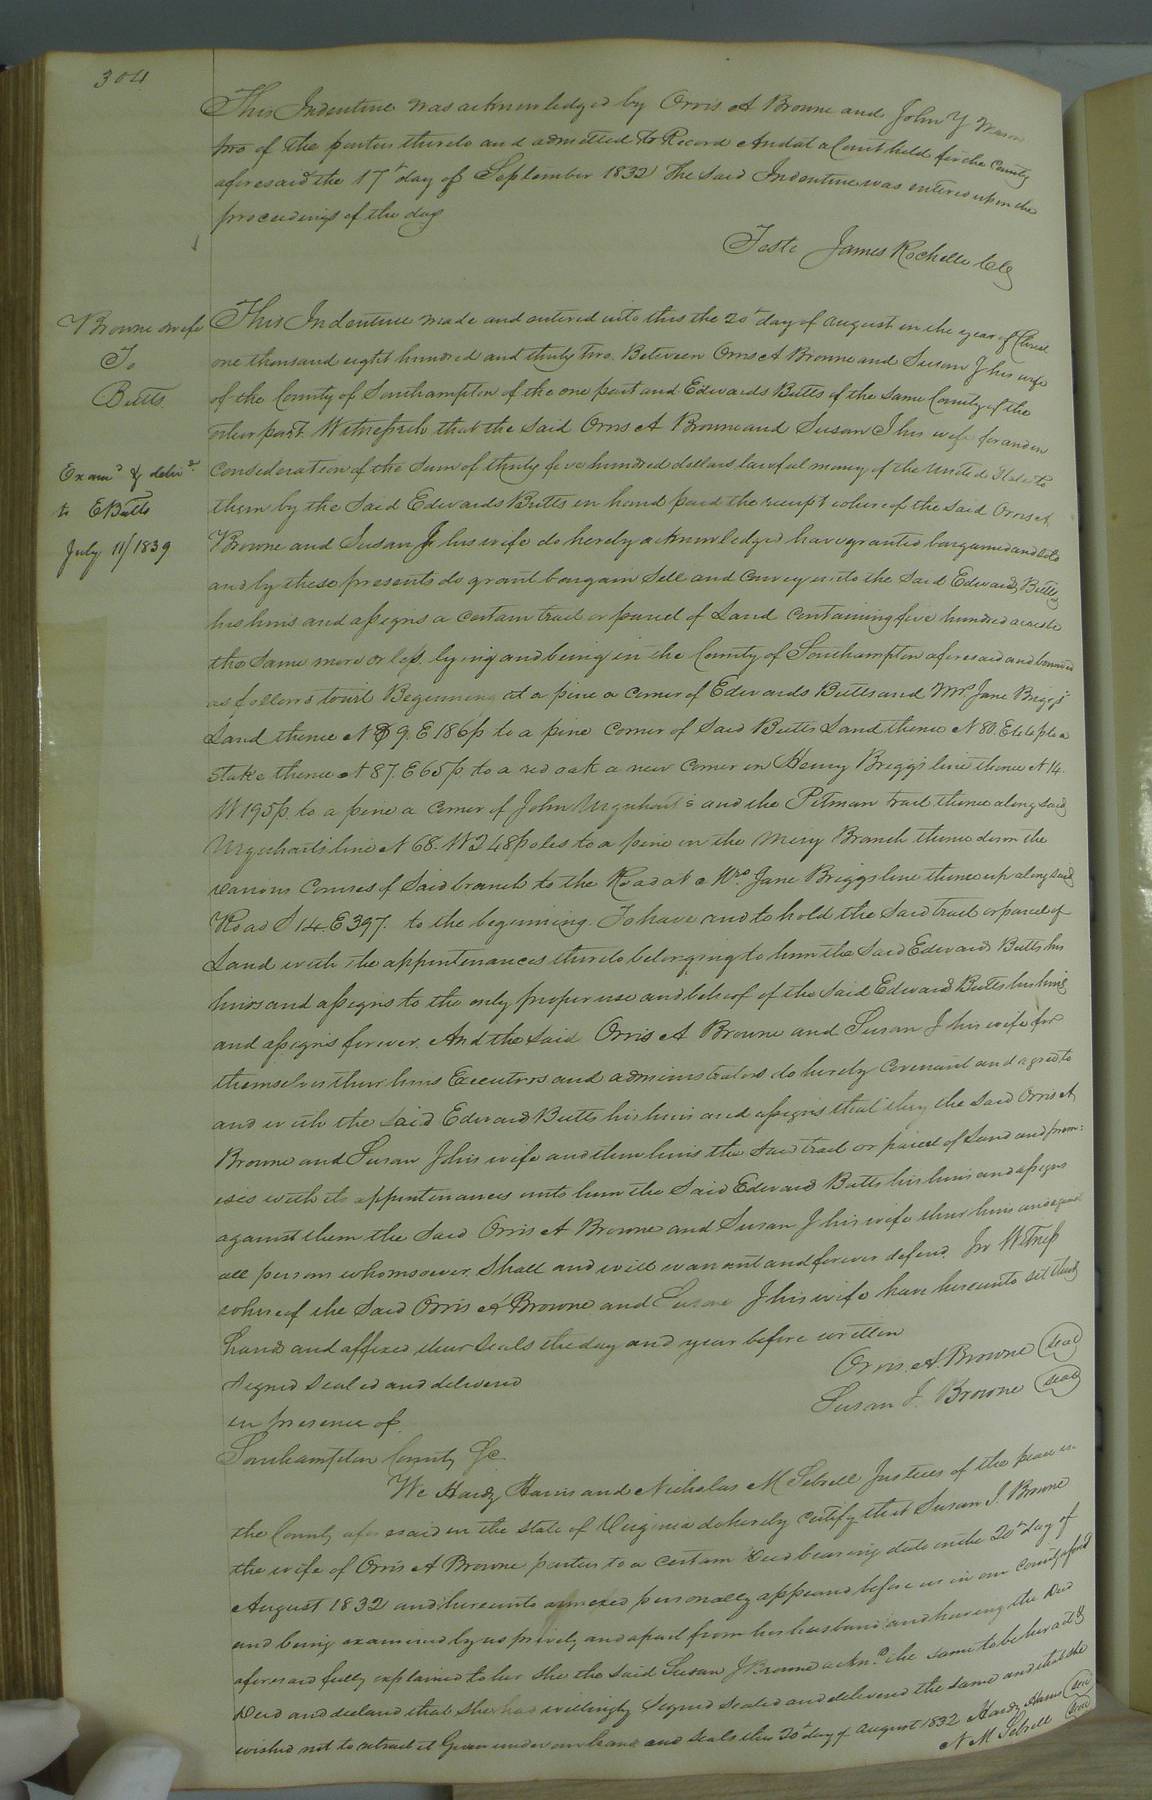 304
This Indenture was acknowledged by Orris A Browne and John Y Mason
two of the parties thereto and admitted to Record And at a Court held for the County
aforesaid the 17th day of September 1832 The said Indenture was entered upon the
proceedings of the day
Teste James Rochelle Clk
Browne & wife
To
Butts
Examd & delivd
to E Butts
July 11/1839
This Indenture made and entered into this the 20th day of August in the year of Christ
one thousand eight hundred and thirty two. Between Orris A Browne and Susan J his wife
of the County of Southampton of the one part and Edwards Butts of the same County of the
other part. Witnesseth that the said Orris A Browne and Susan J his wife for and in
consideration of the sum of thirty five hundred dollars lawful money of the United States to
them by the said Edwards Butts in hand paid the receipt whereof the said Orris A
Browne and Susan J his wife do hereby acknowledged have granted bargained and sold
and by these presents do grant bargain sell and convey unto the said Edwards Butts
his heirs and assigns a certain tract or parcel of Land containing five hundred acres be
the same more or less lying and being in the County of Southampton aforesaid and bounded
as follows towit Beginning at a pine a corner of Edwards Butts and Mrs Jane Briggs's
Land thence N 9. E 186p to a pine corner of said Butts Land thence N 80. E to a
stake thence N 87. E 65p to a red oak a new corner in Henry Briggs line thence N 14.
W 195p. to a pine a corner of John Urquhart's and the Pitman tract thence along said
Urquharts line N 68. W 248 poles to a pine in the Miry Branch thence down the
various courses of said branch to the Road at Mrs. Jane Briggs line thence up along said
Road S 14. E 397. to the beginning. To have and to hold the said tract or parcel of
Land with the appurtenances thereto belonging to him the said Edward Butts his
heirs and assigns to the only proper use and behoof of the said Edward Butts his heirs
and assigns forever. And the said Orris A Browne and Susan J his wife for
themselves their heirs Executors and administrators do hereby covenant and agree to
and with the said Edward Butts his heirs and assigns that they the said Orris A
Browne and Susan J his wife and their heirs the said tract or parcel of Land and prem=
ises with its appurtenances unto him the said Edward Butts his heirs and assigns
against them the said Orris A Browne and Susan J his wife their heirs and against
all persons whomsoever shall and will warrant and forever defend. In Witness
whereof the said Orris A Browne and Susan J his wife have hereunto set their
hands and affixed their seals the day and year before written
Signed Sealed and delivered
in presence of
Orris. A. Browne (seal)
Susan J. Browne (seal)
Southampton County Sc
We Hardy Harris and Nicholas M Sebrell Justices of the peace in
the County aforesaid in the state of Virginia do hereby certify that Susan J. Browne
the wife of Orris A Browne parties to a certain Deed bearing date on the 20th day of
August 1832 and hereunto annexed personally appeared before us in our County aforesd
and being examined by us privily and apart from her husband and having the Deed
aforesaid fully explained to her she the said Susan J Browne acknd. the same to be her act &
Deed and declared that she had willingly signed sealed and delivered the same and that she
wished not to retract it Given under our hands and seals this 20th day of August 1832 Hardy Harris (seal)
N M Sebrell (seal)